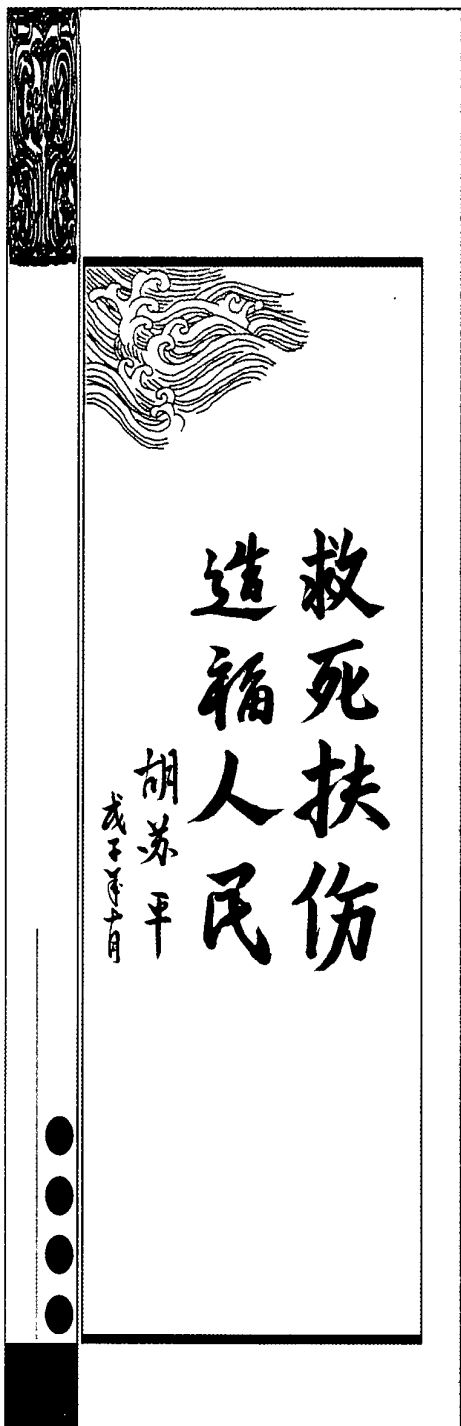 救死扶伤
造福人民
胡苏平
戊子年十月